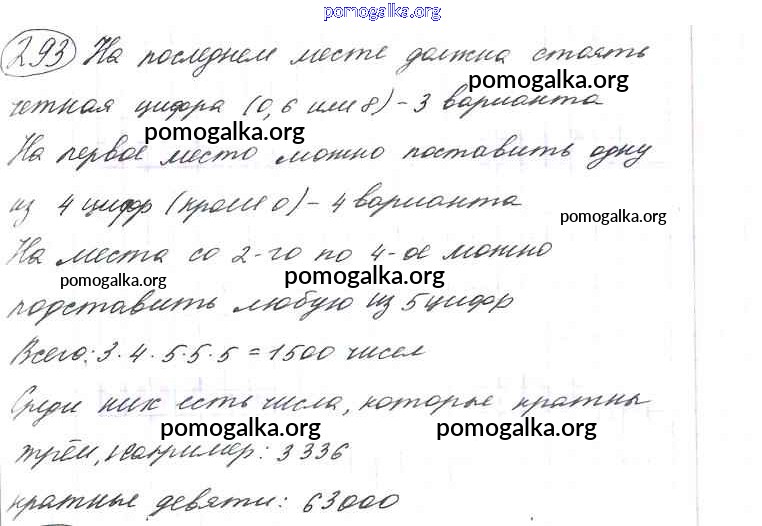 pomogalka.org
293 На последнем месте должна стоять
pomogalka.org
четная цифра (0, 6 или 8) – 3 варианта
pomogalka.org
На первое место можно поставить одну
из 4 цифр (кроме 0) – 4 варианта
pomogalka.org
На места со 2-го по 4-ое можно
pomogalka.org pomogalka.org
подставить любую из 5 цифр
Всего: 3·4·5·5·5 = 1500 чисел
Среди них есть числа, которые кратны
pomogalka.org pomogalka.org
трём, например: 3336
кратные девяти: 63000